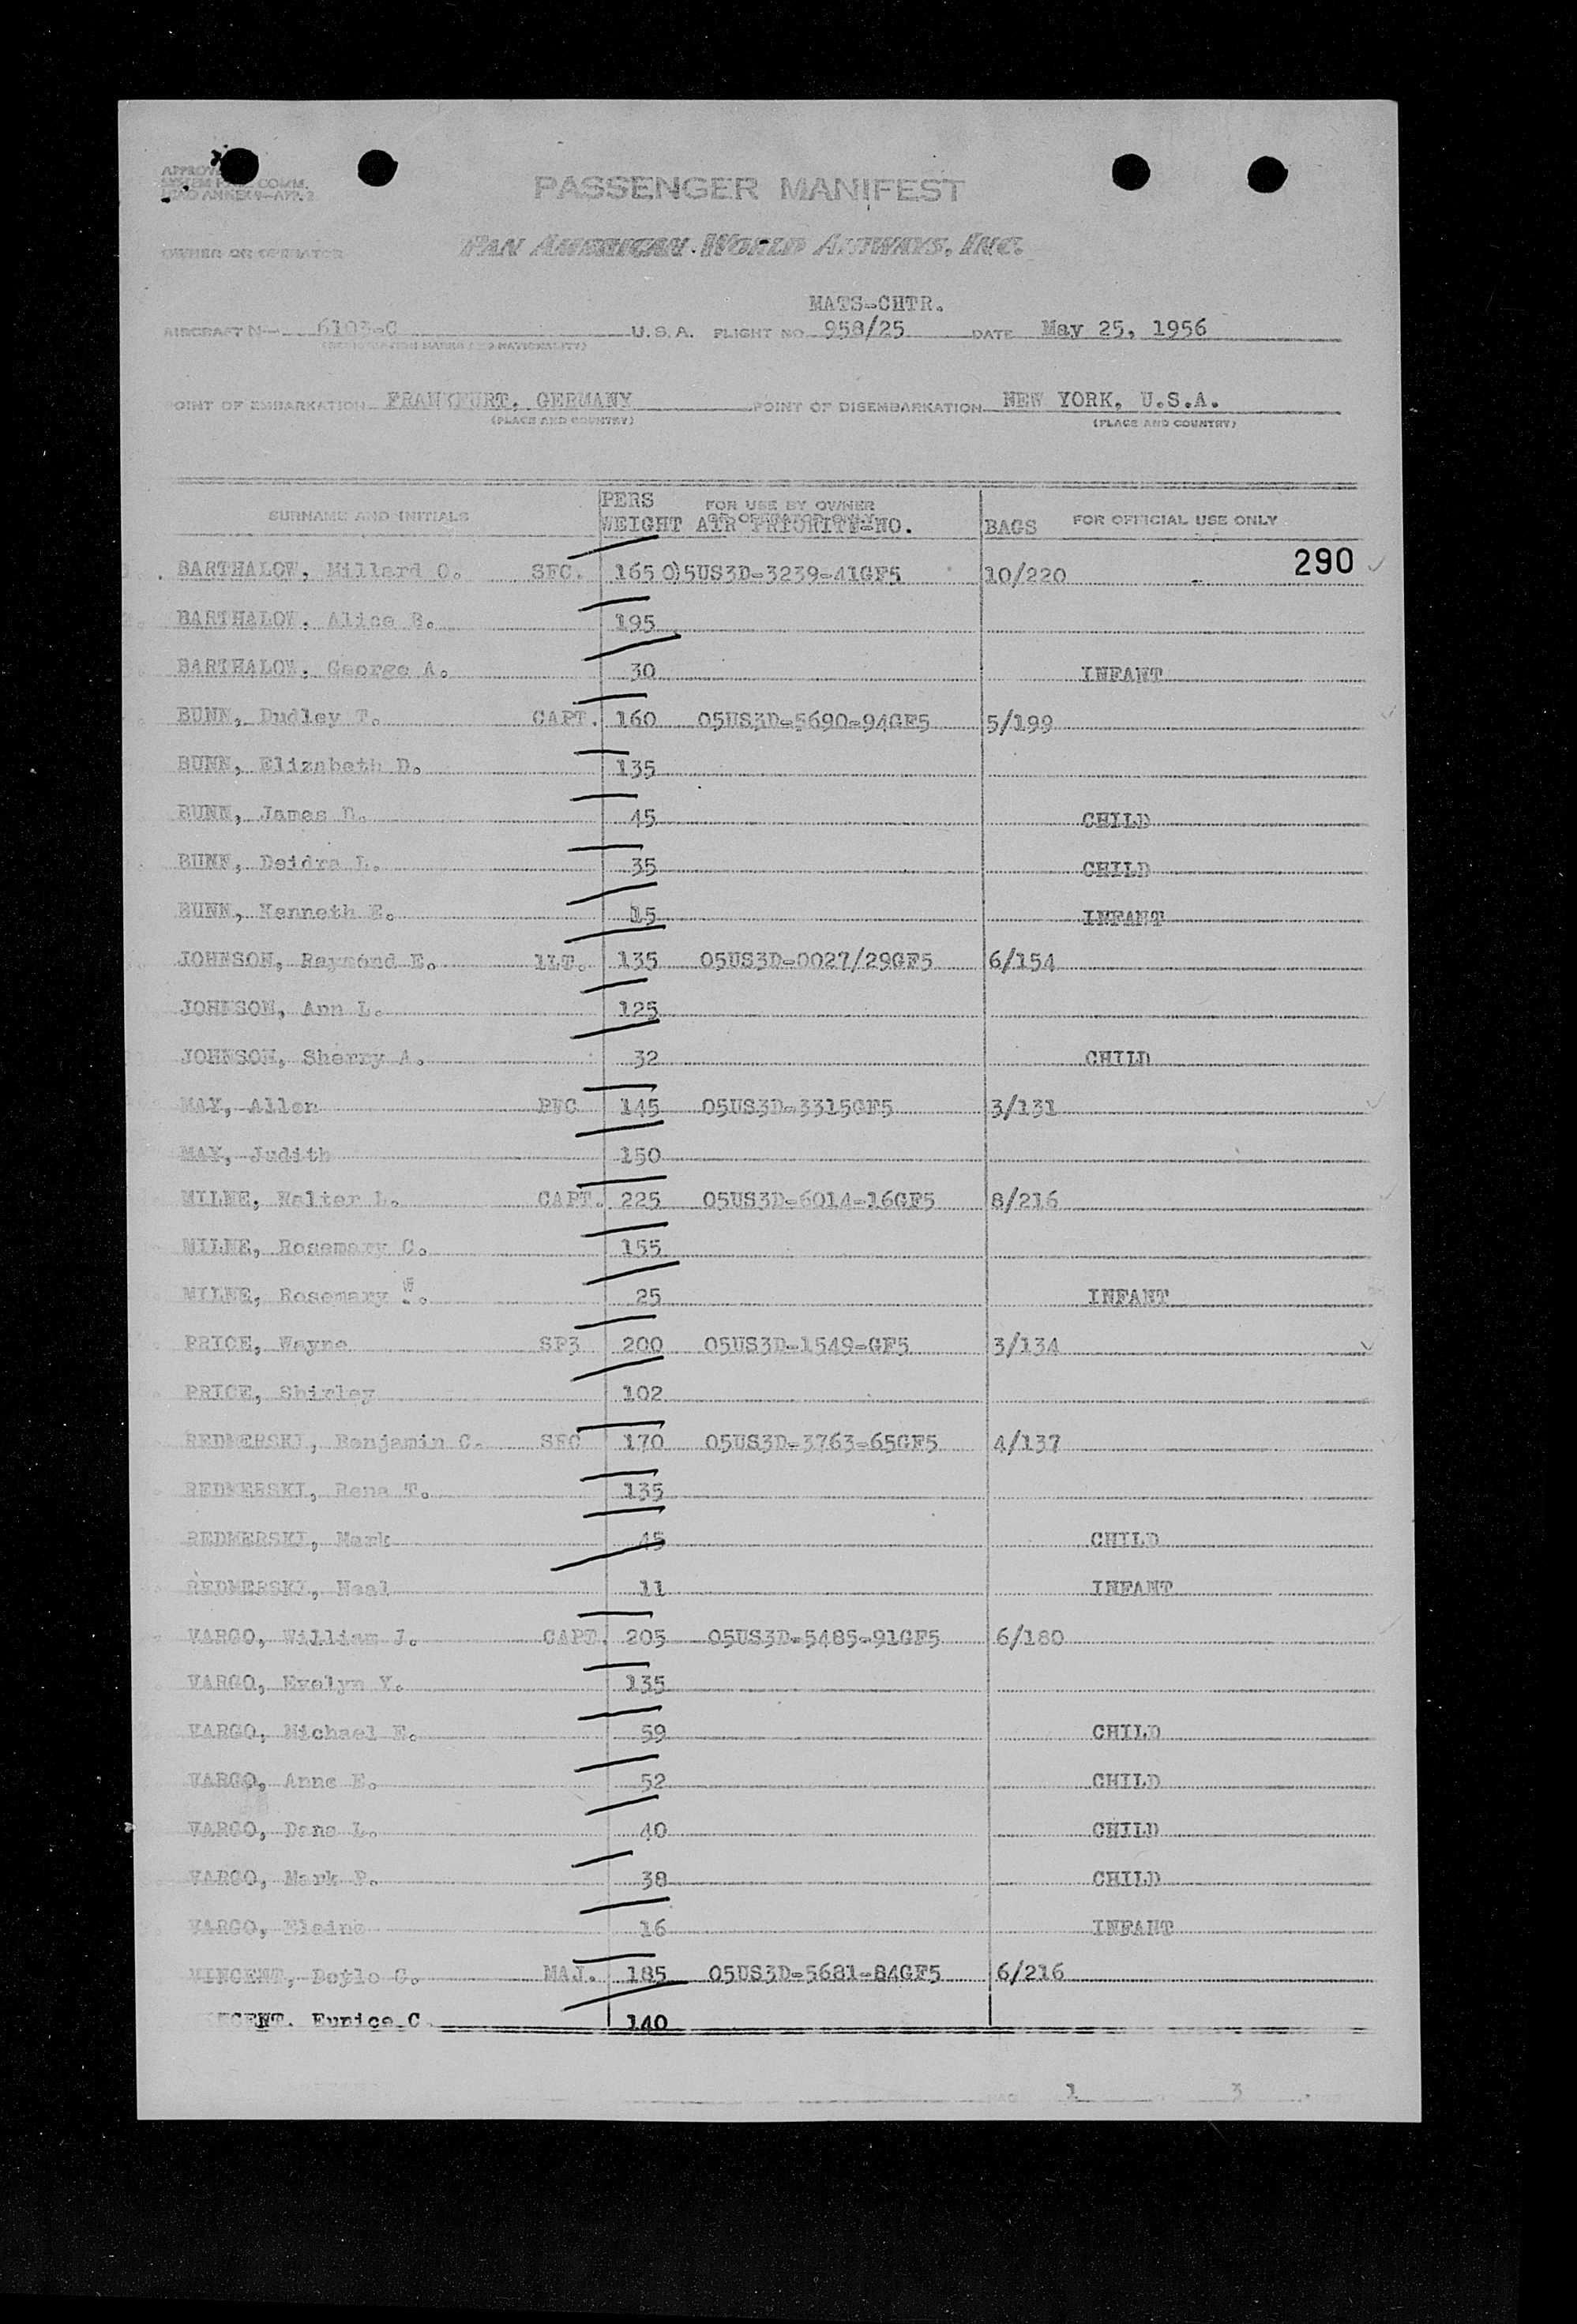 PASSENGER MANIFEST
PAN AMERICAN WORLD AIRWAYS, INC.
OWNER OR OPERATOR
MATS-CHTR.
AIRCRAFT N— 6103-C U.S.A. FLIGHT NO. 958/25 DATE May 25, 1956
POINT OF EMBARKATION FRANKFURT, GERMANY POINT OF DISEMBARKATION NEW YORK, U.S.A.
(PLACE AND COUNTRY) (PLACE AND COUNTRY)
SURNAME AND INITIALS PERS WEIGHT FOR USE BY OWNER OR OPERATOR ONLY AIR PRIORITY-NO. BAGS FOR OFFICIAL USE ONLY
290
BARTHALOW, Millard O. SFC. 165 05US3D-3239-41GF5 10/220
BARTHALOW, Alice B. 195
BARTHALOW, George A. 30 INFANT
BUNN, Dudley T. CAPT. 160 05US3D-5690-94GF5 5/199
BUNN, Elizabeth D. 135
BUNN, James D. 45 CHILD
BUNN, Deidra L. 35 CHILD
BUNN, Kenneth E. 15 INFANT
JOHNSON, Raymond E. 1LT. 135 05US3D-0027/29GF5 6/154
JOHNSON, Ann L. 125
JOHNSON, Sherry A. 32 CHILD
MAY, Allen PFC 145 05US3D-3315GF5 3/131
MAY, Judith 150
MILNE, Walter L. CAPT. 225 05US3D-6014-16GF5 8/216
MILNE, Rosemary C. 155
MILNE, Rosemary W. 25 INFANT
PRICE, Wayne SP3 200 05US3D-1549-GF5 3/134
PRICE, Shirley 102
REDMERSKI, Benjamin C. SFC 170 05US3D-3763-65GF5 4/137
REDMERSKI, Rena T. 135
REDMERSKI, Mark 45 CHILD
REDMERSKI, Neal 11 INFANT
VARGO, William J. CAPT. 205 05US3D-5485-91GF5 6/180
VARGO, Evelyn Y. 135
VARGO, Michael E. 59 CHILD
VARGO, Anne E. 52 CHILD
VARGO, Dana L. 40 CHILD
VARGO, Mark P. 38 CHILD
VARGO, Elaine 16 INFANT
VINCENT, Doylo G. MAJ. 185 05US3D-5681-84GF5 6/216
CENT. Eunice C. 140
1 3